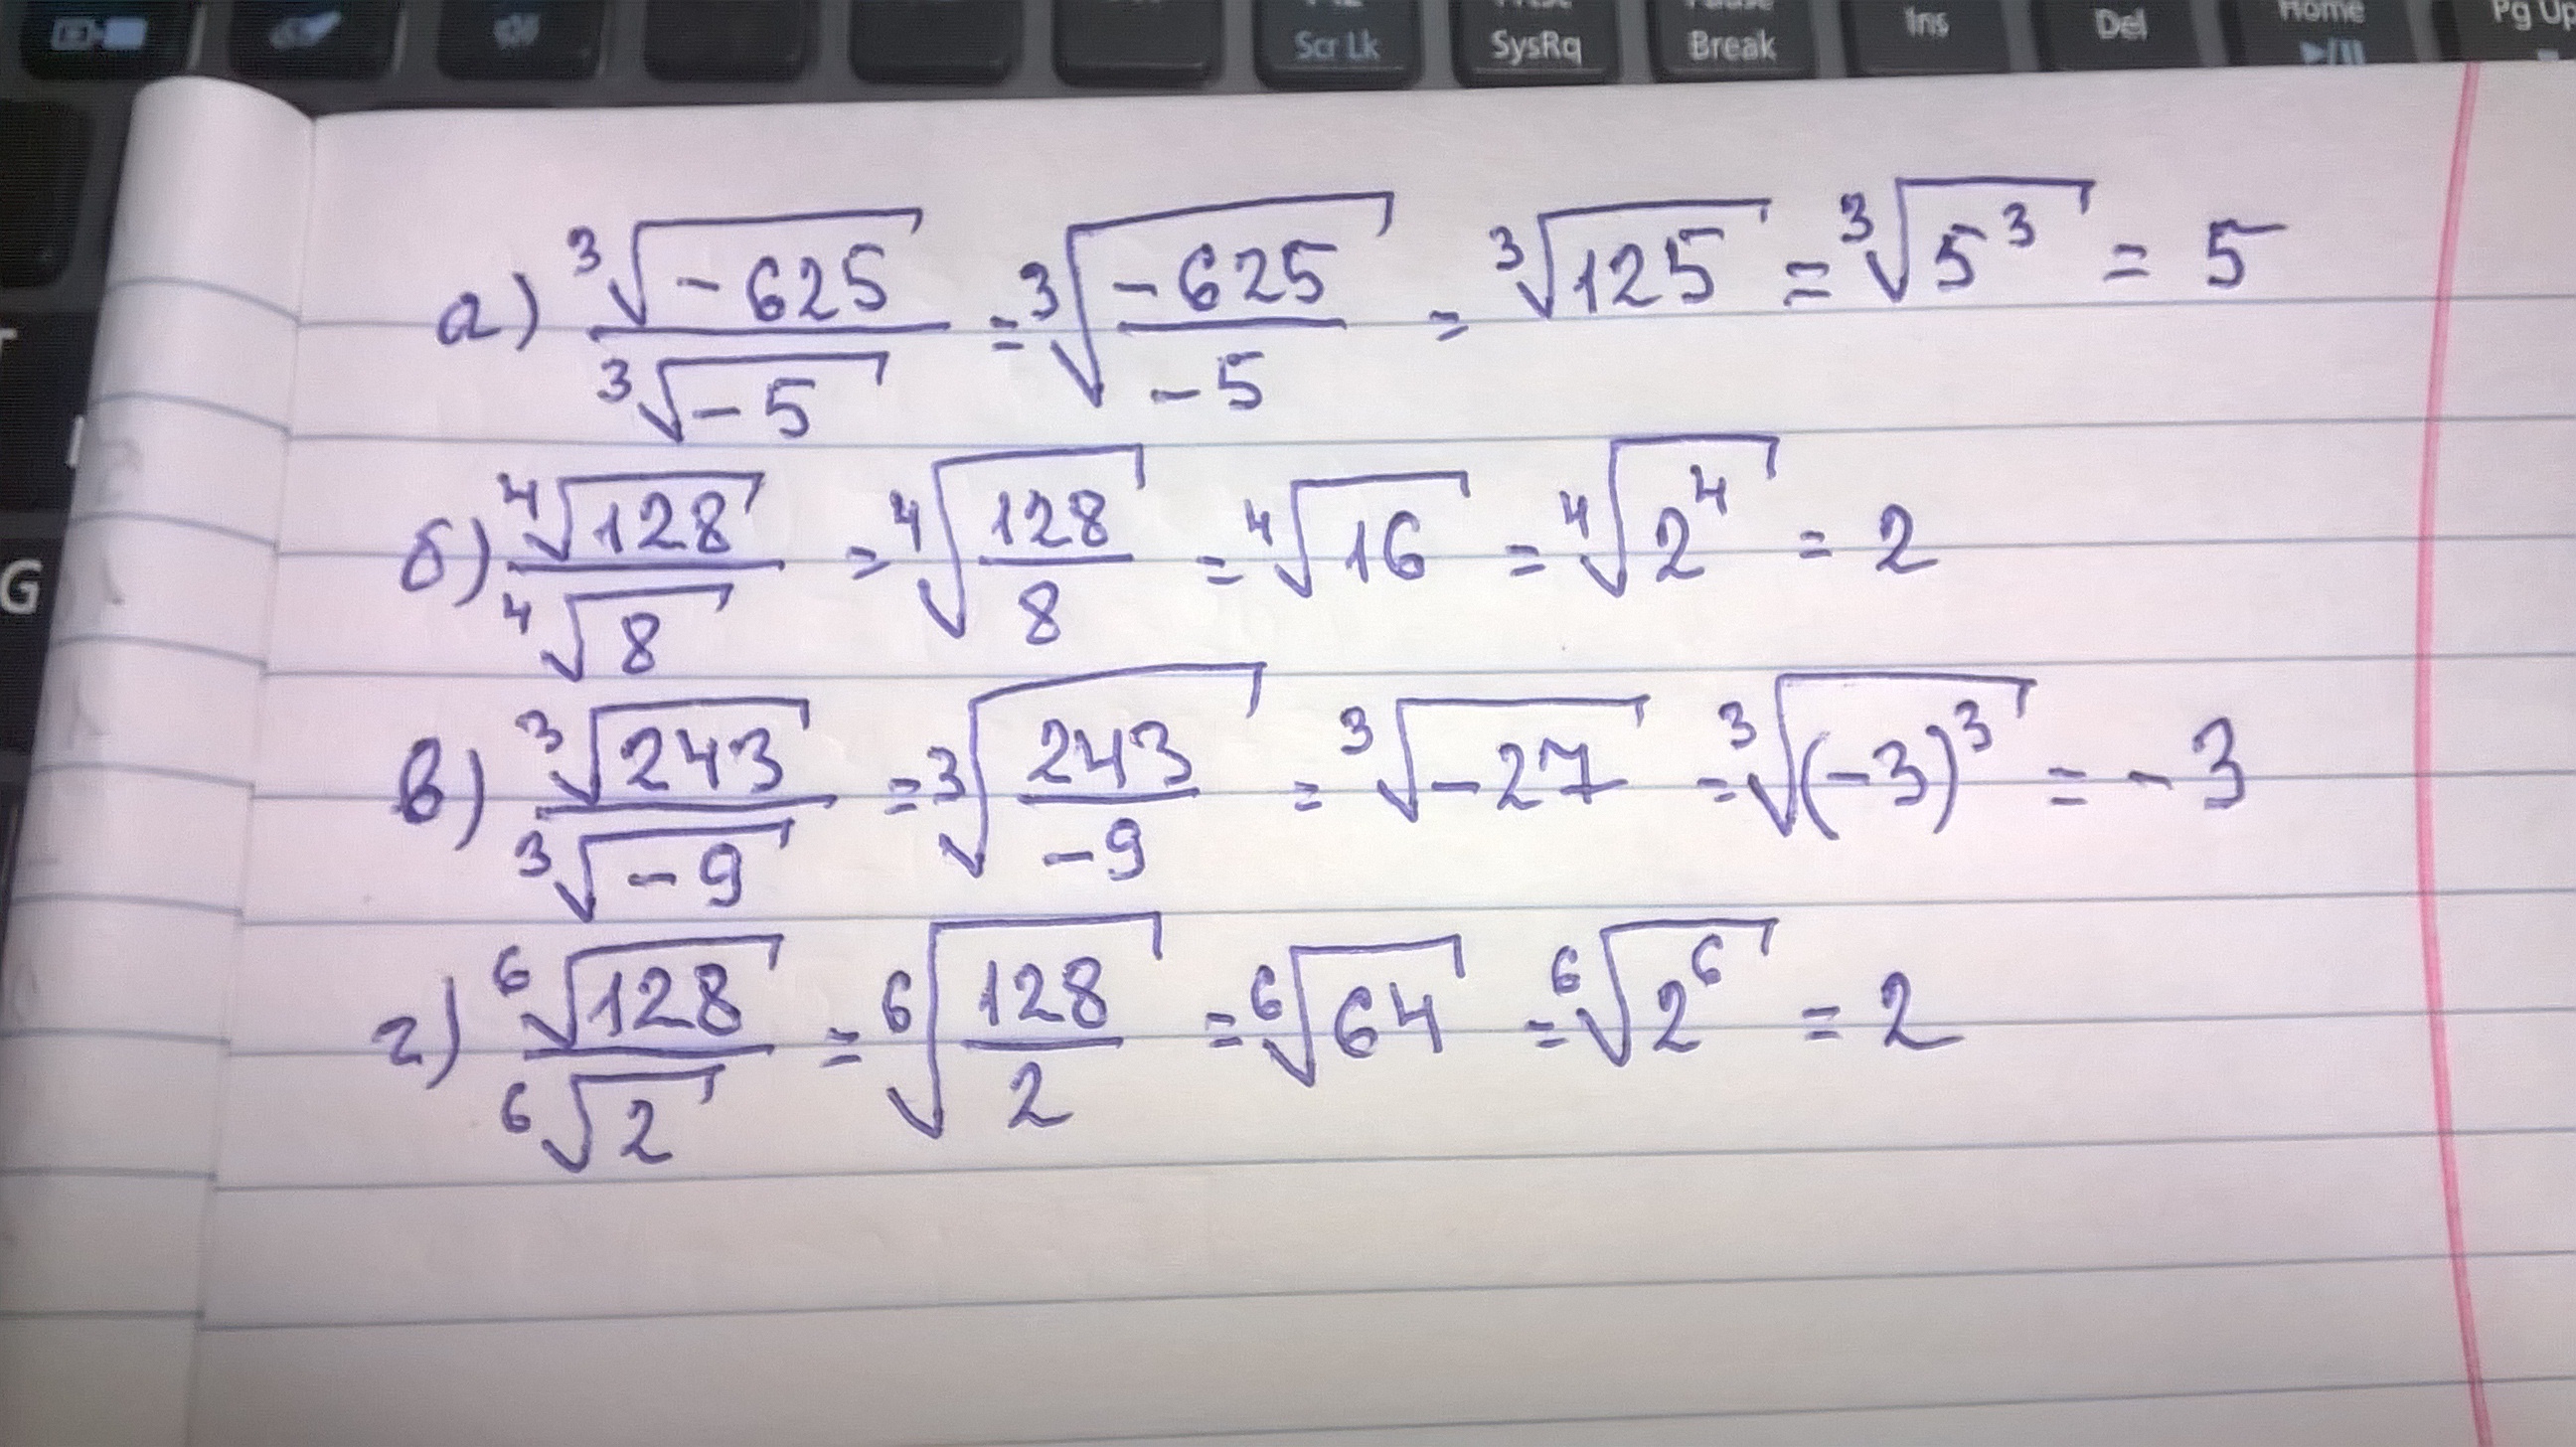 Scr Lk SysRq Break Ins Del Home Pg Up
а) ∛(-625) / ∛(-5) = ∛(-625 / -5) = ∛125 = ∛(5³) = 5
G
б) ⁴√128 / ⁴√8 = ⁴√(128 / 8) = ⁴√16 = ⁴√(2⁴) = 2
в) ∛243 / ∛(-9) = ∛(243 / -9) = ∛(-27) = ∛((-3)³) = -3
г) ⁶√128 / ⁶√2 = ⁶√(128 / 2) = ⁶√64 = ⁶√(2⁶) = 2